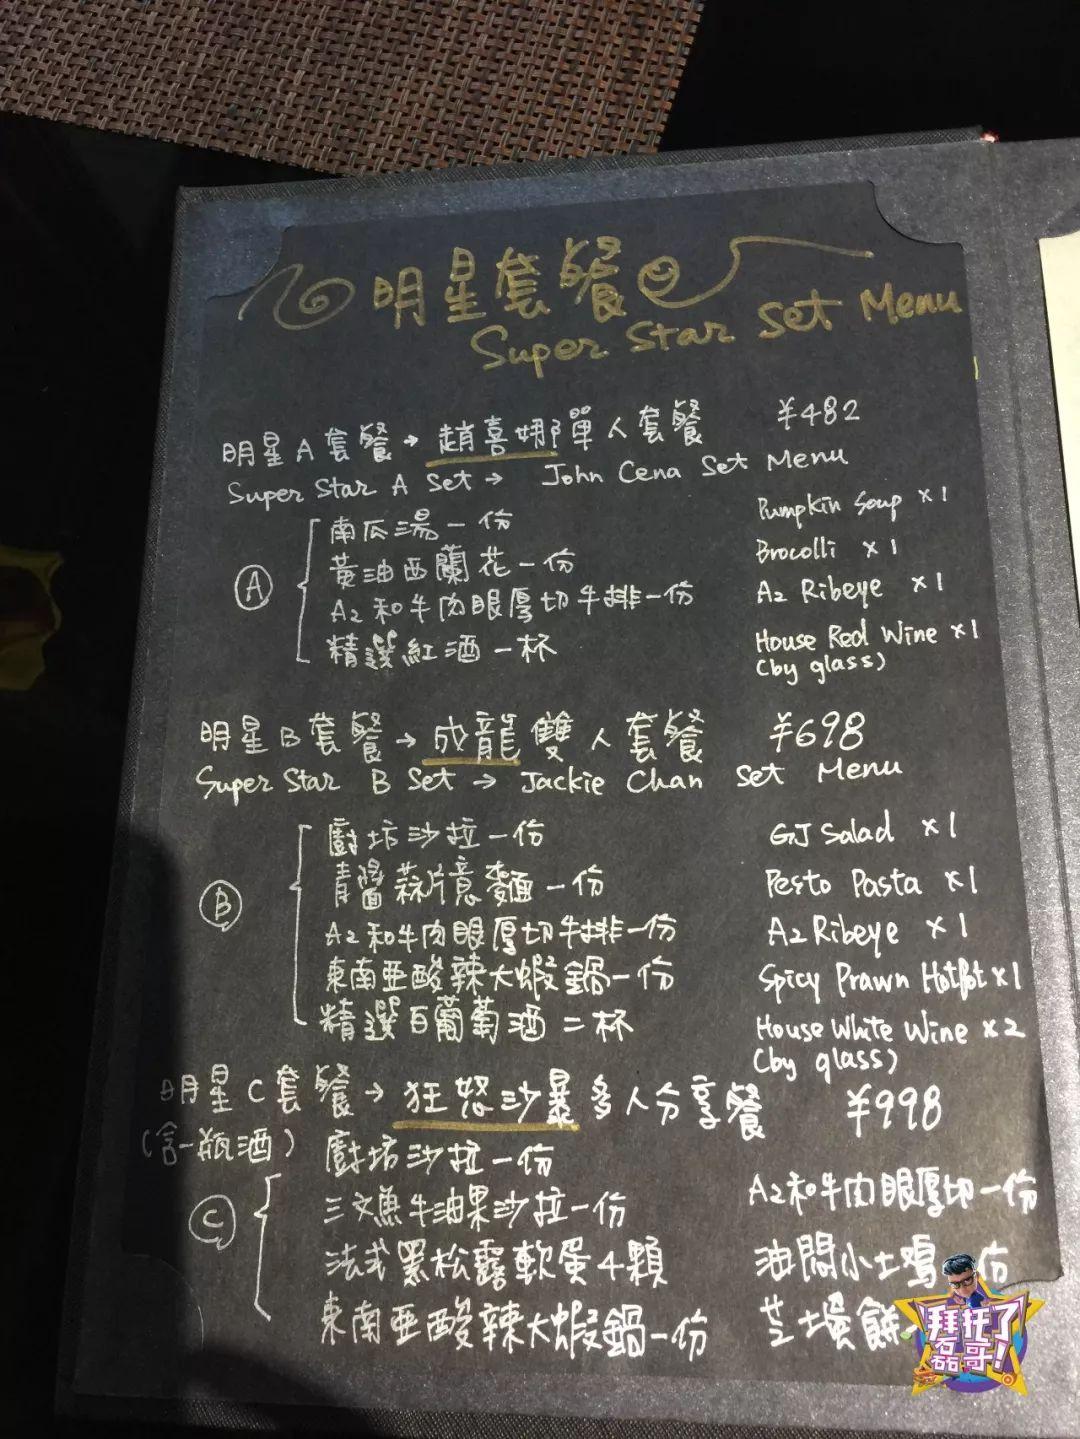 明星套餐
Super Star Set Menu
明星A套餐→趙喜娜單人套餐 ¥482
Super Star A Set → John Cena Set Menu
A
南瓜湯一份 Pumpkin Soup ×1
黃油西蘭花一份 Brocolli ×1
A2和牛肉眼厚切牛排一份 A2 Ribeye ×1
精選紅酒一杯 House Red Wine ×1
(by glass)
明星B套餐→成龍雙人套餐 ¥698
Super Star B Set → Jackie Chan Set Menu
B
廚坊沙拉一份 GJ Salad ×1
青醬蒜片意麵一份 Pesto Pasta ×1
A2和牛肉眼厚切牛排一份 A2 Ribeye ×1
東南亞酸辣大蝦鍋一份 Spicy Prawn HotPot ×1
精選白葡萄酒二杯 House White Wine ×2
(by glass)
明星C套餐→狂怒沙暴多人分享餐 ¥998
(含一瓶酒)
C
廚坊沙拉一份
三文魚牛油果沙拉一份 A2和牛肉眼厚切一份
法式黑松露軟蛋4顆 油悶小土鳴 份
東南亞酸辣大蝦鍋一份 餅
拜托了
磊哥!